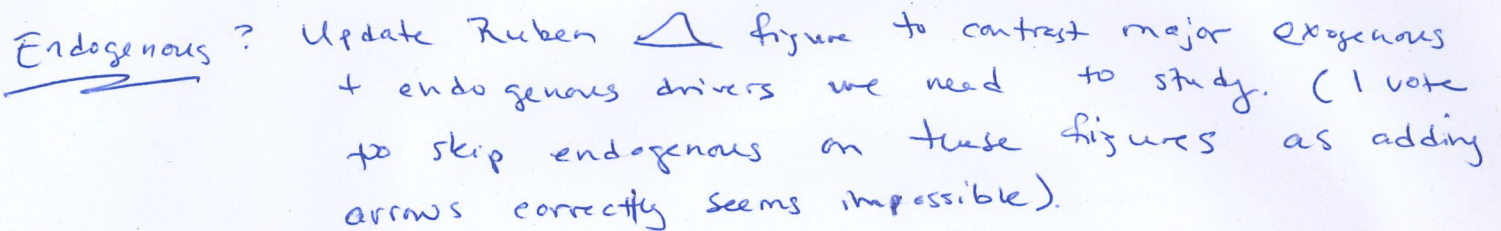 Endogenous? Update Ruben figure to contrast major exogenous
+ endogenous drivers we need to study. (I vote
to skip endogenous on these figures as adding
arrows correctly seems impossible).